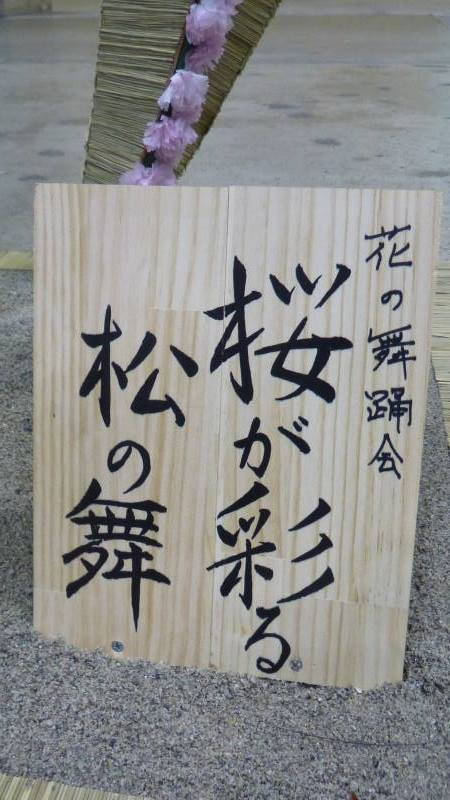 花の舞踊会
桜が彩る
松の舞